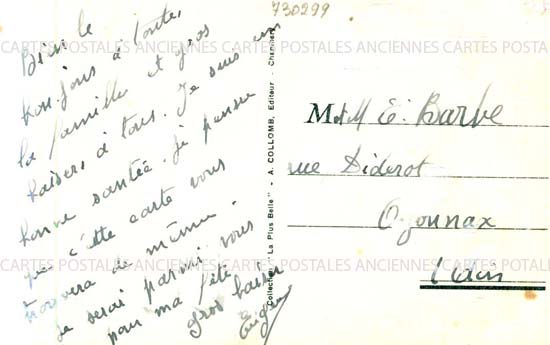 730299
Bien le
bonjous à toute
la famille et gros
baisers à tous. Je suis en
bonne santée. je pense
que cette carte vous
trouvera de même.
Je serai parmi vous
pour ma fête.
gros baiser
Eugène
Collection "La Plus Belle" - A. COLLOMB, Editeur - Chambéry
M et M E. Barbe
rue Diderot
Oyonnax
l'Ain
CARTES POSTALES ANCIENNES CARTES POSTALES ANCIENNES CARTES POSTALES
CARTES POSTALES ANCIENNES CARTES POSTALES ANCIENNES CARTES POSTALES